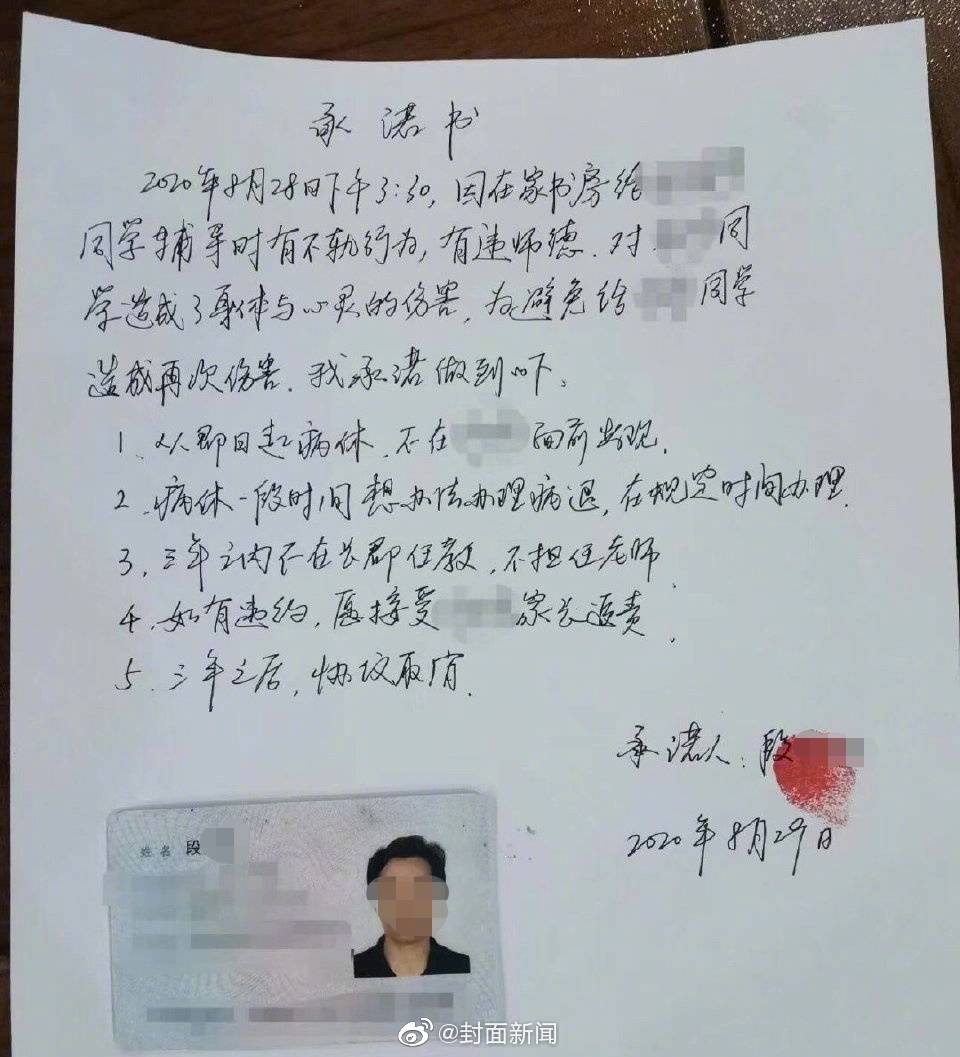 承诺书
2020年8月28日下午3:30，因在家书房给
同学辅导时有不轨行为，有违师德．对 同
学造成了身体与心灵的伤害，为避免给 同学
造成再次伤害．我承诺做到如下：
1、从即日起病休．不在 面前出现．
2、病休一段时间想办法办理病退，在规定时间办理．
3、三年之内不在长郡任教，不担任老师．
4、如有违约，愿接受 家长追责．
5、三年之后，协议取消．
承诺人：段
2020年8月29日
姓名 段
@封面新闻